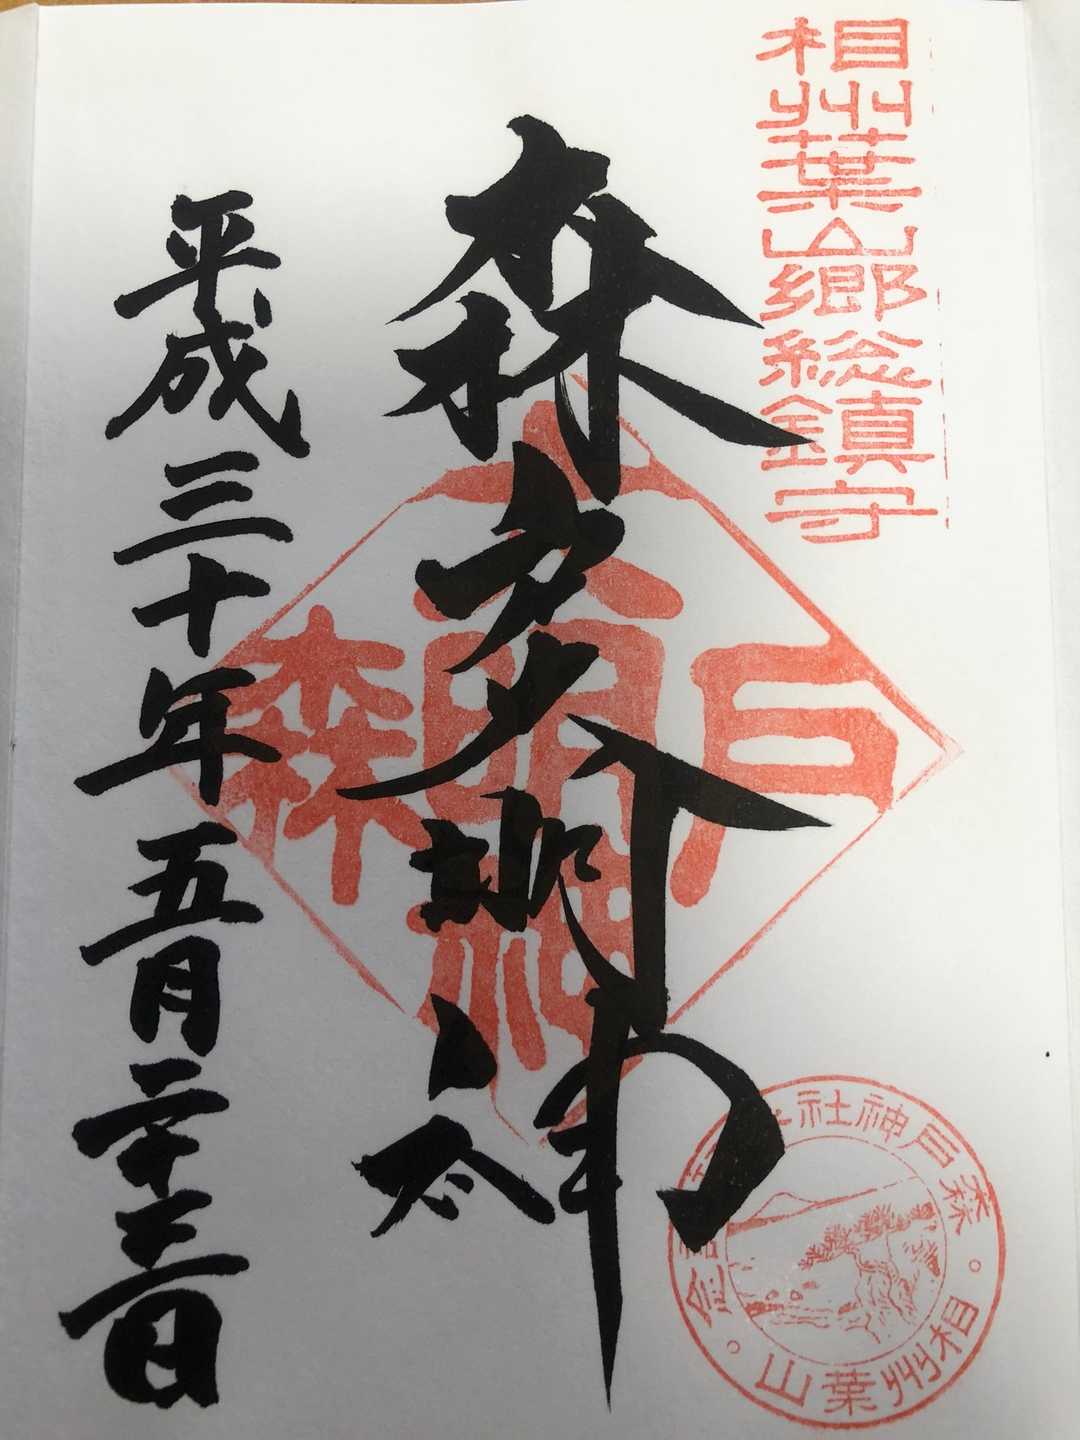 相州葉山郷総鎮守
森戸大明神
平成三十年五月二十三日
森戸
大明神
森戸神社
相州葉山